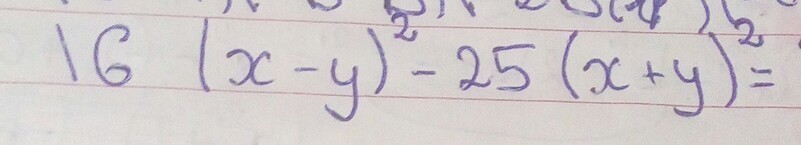 16 (x-y)² - 25 (x+y)² =